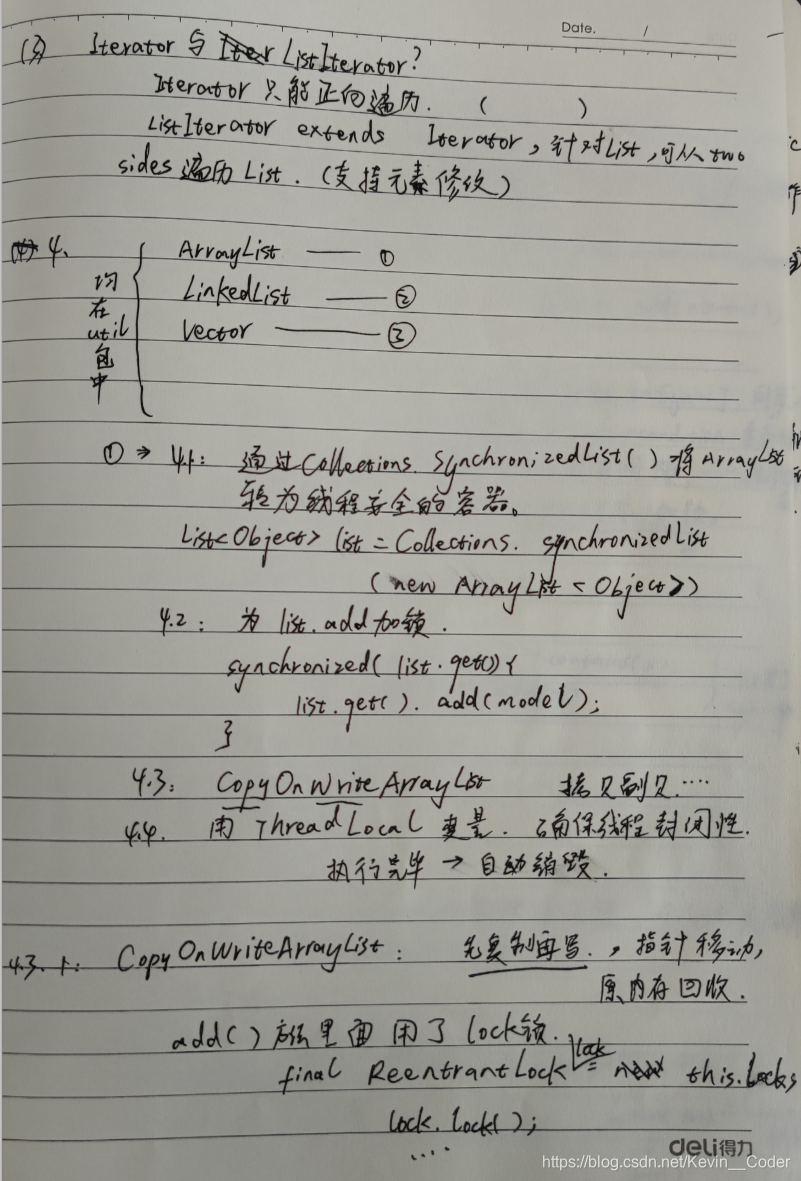 Date. /
(3) Iterator 与 ListIterator?
Iterator 只能正向遍历. ( )
ListIterator extends Iterator, 针对List, 可从 two
sides 遍历 List. (支持元素修改)
4.
均在util包中
ArrayList —— ①
LinkedList —— ②
Vector —— ③
① → 4.1: 通过Collections. SynchronizedList( ) 将ArrayList
转为线程安全的容器。
List<Object> list = Collections. synchronizedList
(new ArrayList <Object>)
4.2: 为 list.add 加锁.
synchronized( list.get()){
list.get( ). add(model);
}
4.3: CopyOnWriteArrayList 拷贝副贝....
4.4. 用 ThreadLocal 变量. 确保线程封闭性.
执行完毕 → 自动销毁.
4.3.1: CopyOnWriteArrayList: 先复制再写. , 指针移动,
原内存回收.
add( ) 方法里面用了 lock锁.
final ReentrantLock lock = this.lock;
lock.lock( );
....
deli得力
https://blog.csdn.net/Kevin__Coder